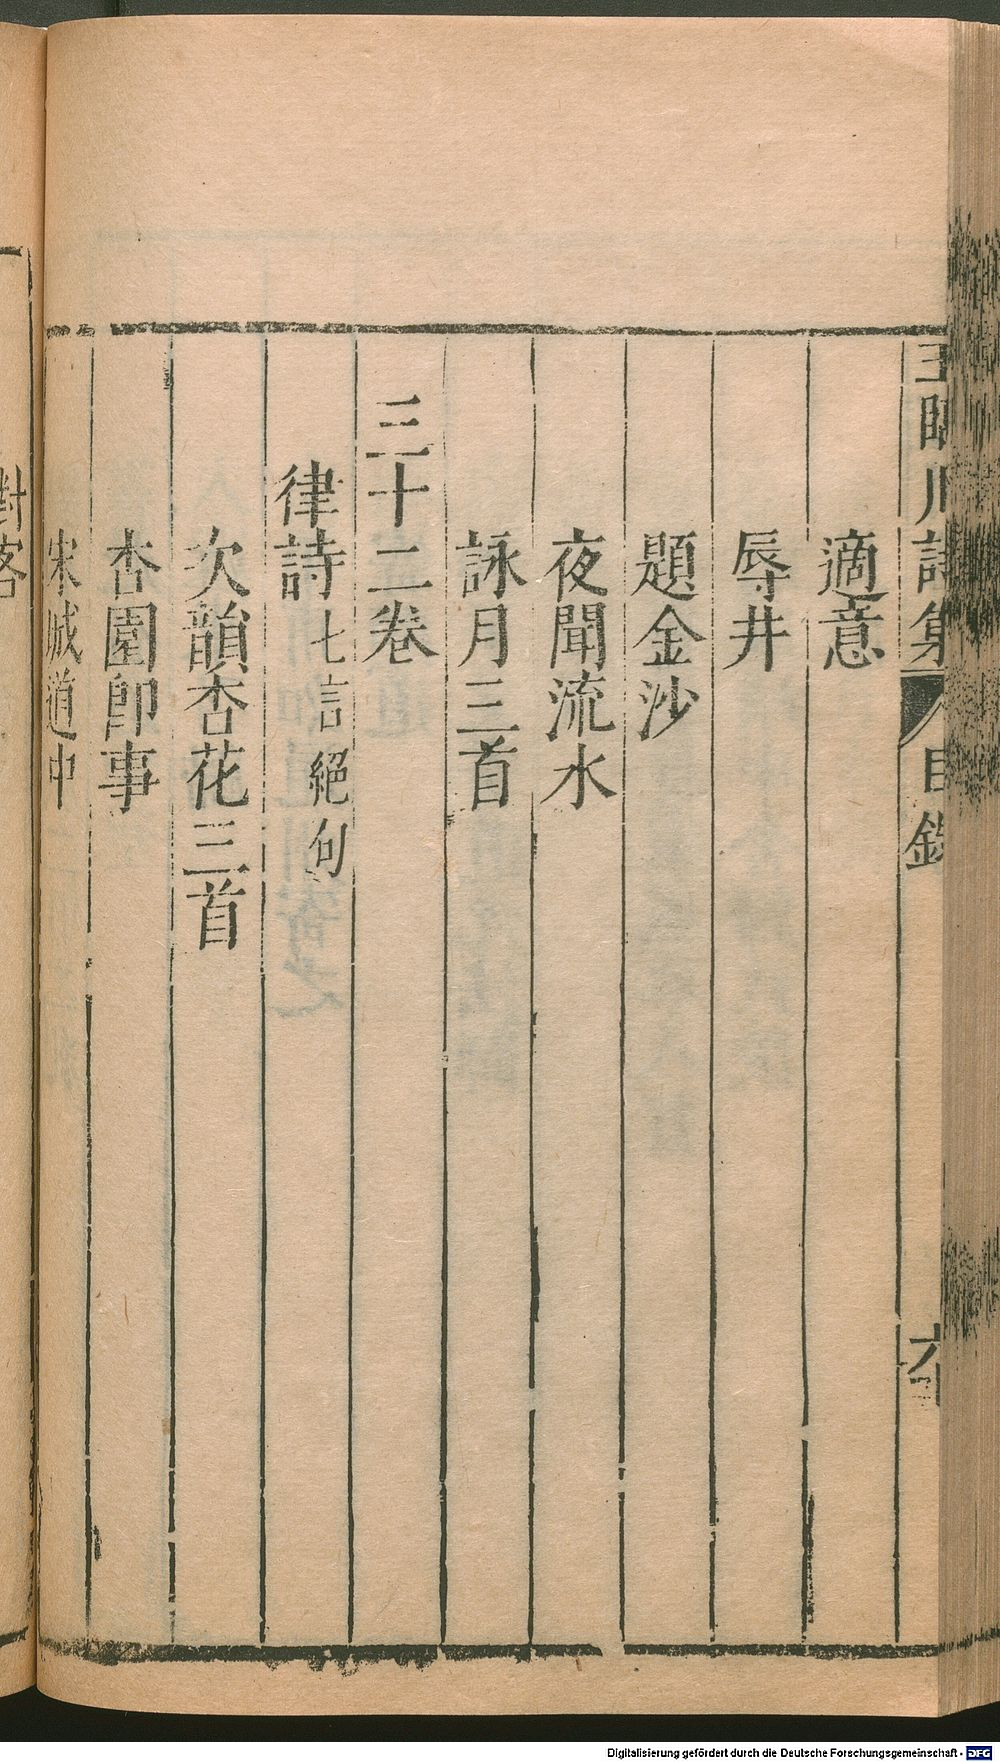 王臨川詩集 目錄 六十
適意
辱井
題金沙
夜聞流水
詠月三首
三十二卷
律詩七言絕句
次韻杏花三首
杏園卽事
宋城道中
對客
Digitalisierung gefördert durch die Deutsche Forschungsgemeinschaft - DFG